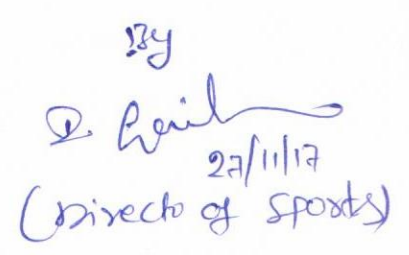 By
27/11/17
(Directo of Sports)